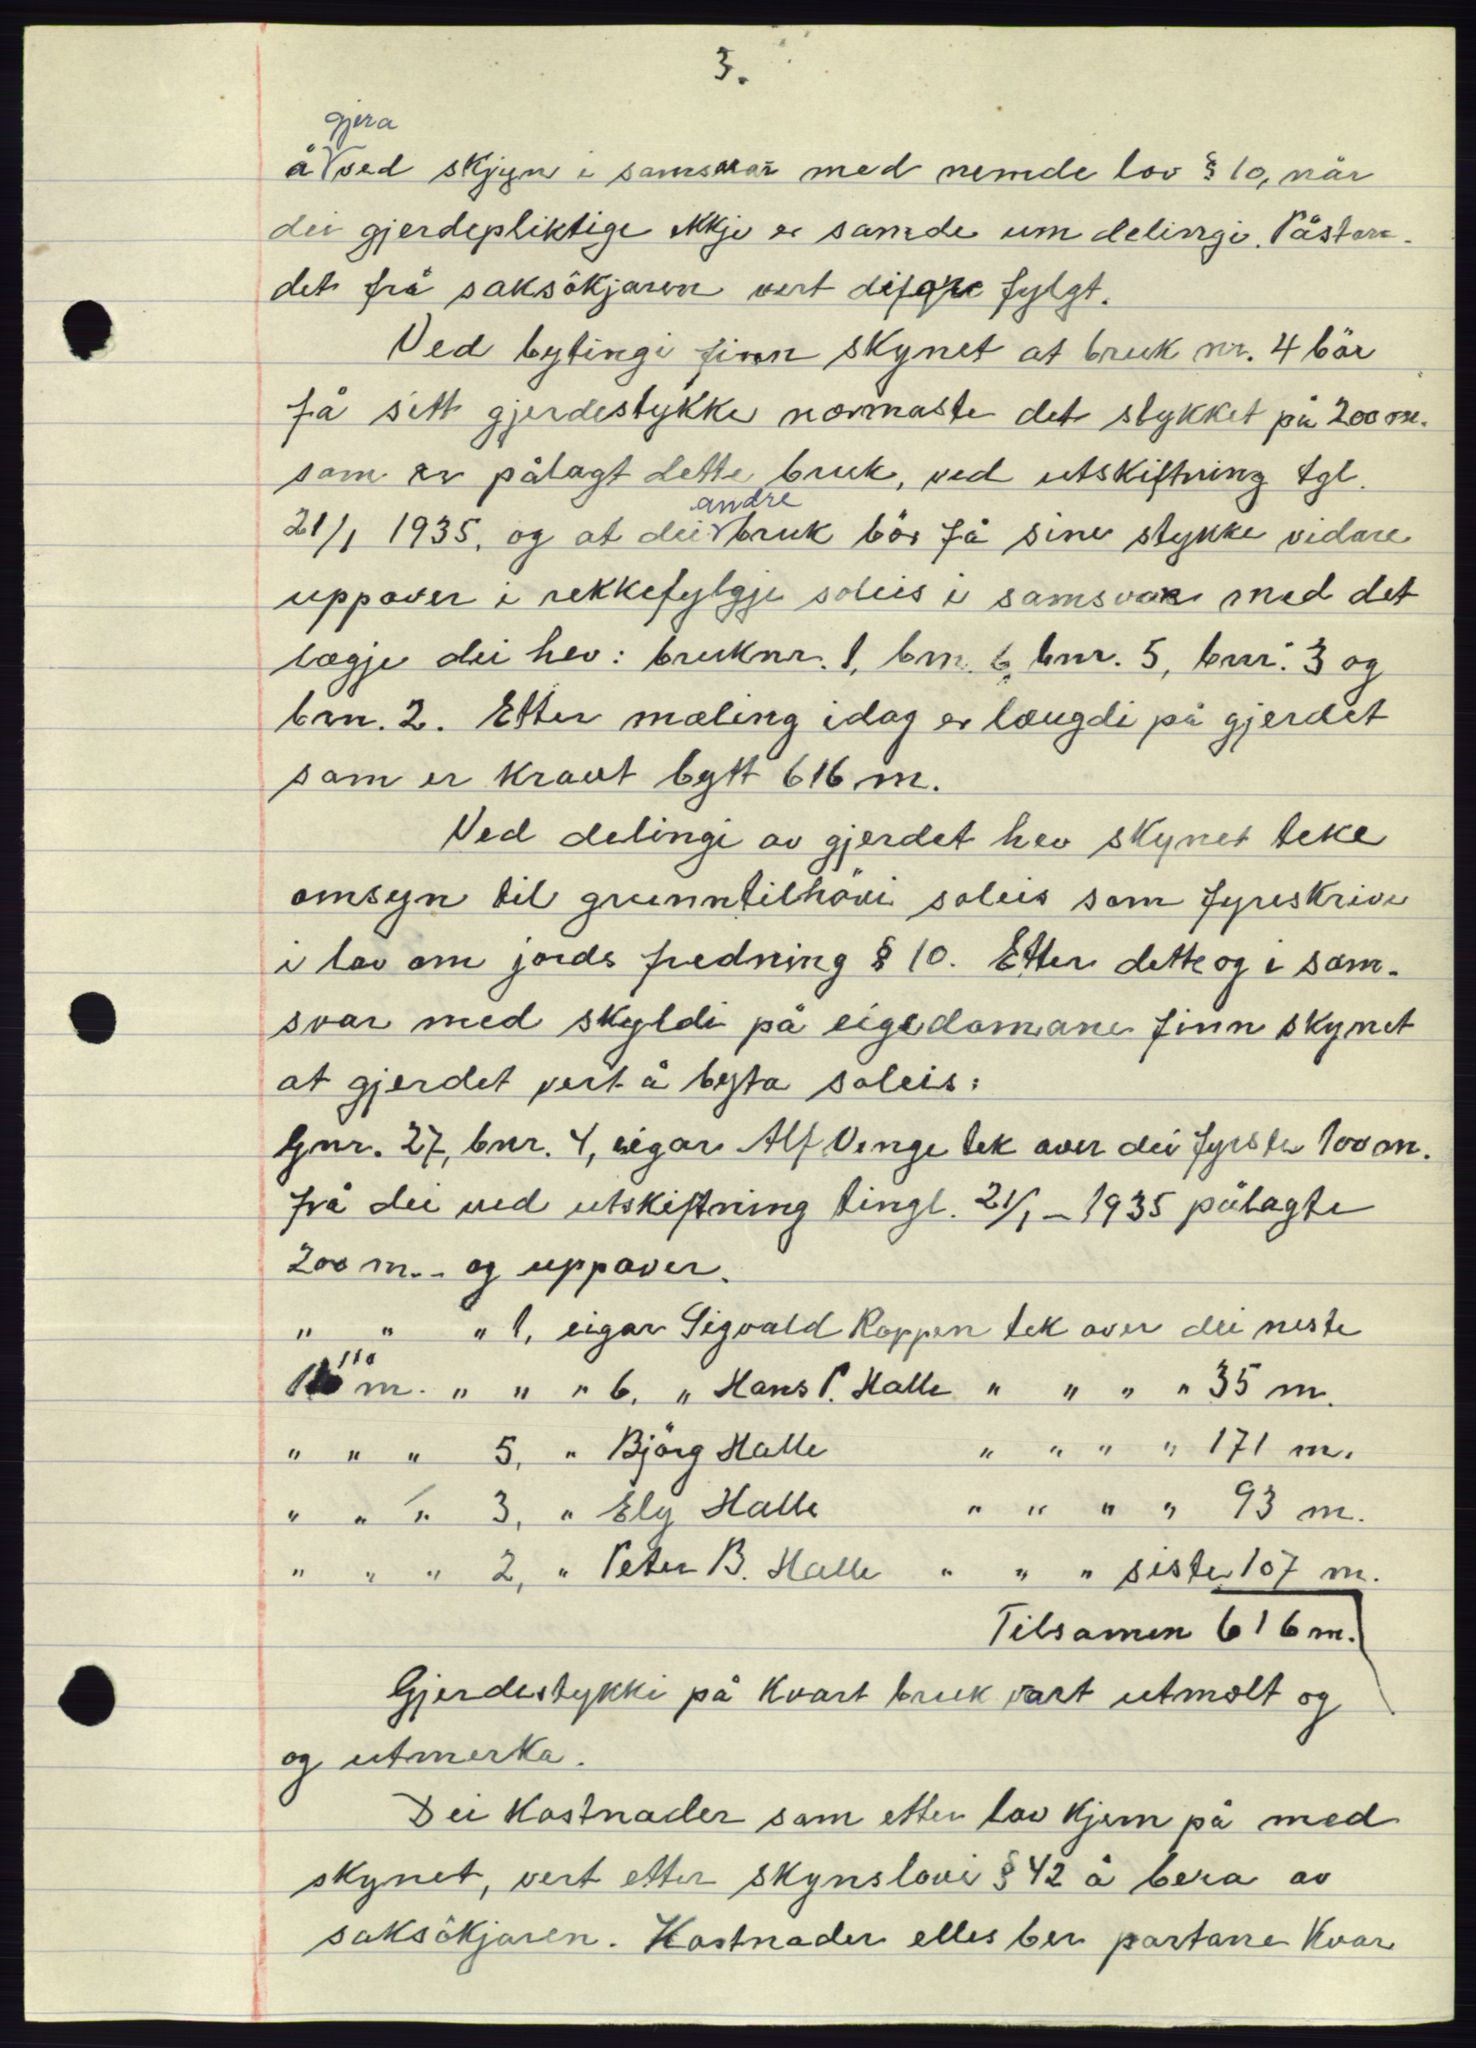 3.
gjera
å ved skjyn i samsvar med nemde lov § 10, når
dei gjerdepliktige ikkje er samde um delingi. Påstan-
det frå saksökjaren vert difyre fylgt.
Ved bytingi finn skynet at bruk nr. 4 bör
få sitt gjerdestykke nærmaste det stykket på 200 m.
som er pålagt dette bruk, ved utskiftning tgl.
andre
21/1 1935, og at dei bruk bör få sine stykke vidare
uppover i rekkefylgje soleis i samsvar med det
lægje dei hev: bruknr. 1, bnr. 6, bnr. 5, bnr. 3 og
brn. 2. Etter mæling idag er længdi på gjerdet
som er kravt bytt 616 m.
Ved delingi av gjerdet hev skynet teke
omsyn til grunntilhövi soleis som fyreskrive
i lov om jords fredning § 10. Etter dette og i sam-
svar med skyldi på eigedomane finn skynet
at gjerdet vert å byta soleis:
Gnr. 27, bnr. 4, eigar Alf Venge tek over dei fyrste 100 m.
frå dei ved utskiftning tingl. 21/1 - 1935 pålagte
200 m. - og uppover.
" " " 1, eigar Sigvald Roppen tek over dei neste
110
m. " " " 6, " Hans P. Halle " " " " 35 m.
" " " 5, " Björg Halle " " " " 171 m.
" " " 3, " Ely Halle " " " " 93 m.
" " " 2, " Peter B. Halle " " " siste 107 m.
Tilsamen 616 m.
Gjerdestykki på kvart bruk vart utmælt og
og utmerka.
Dei kostnader som etter lov kjem på med
skynet, vert etter skynslovi § 42 å bera av
saksökjaren. Kostnader elles ber partane kvar